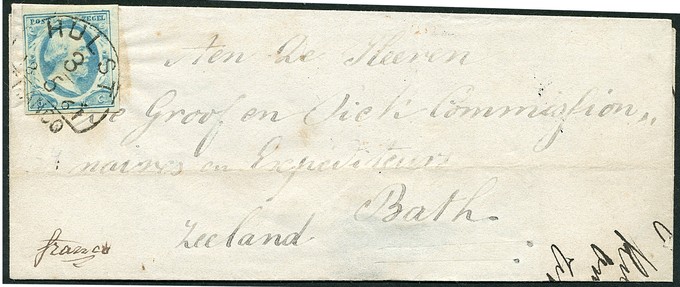 POST ZEGEL
HULST
Aen De Heeren
De Groof en Dick Commission,,
naires en Expediteurs
Bath.
Zeeland
franco